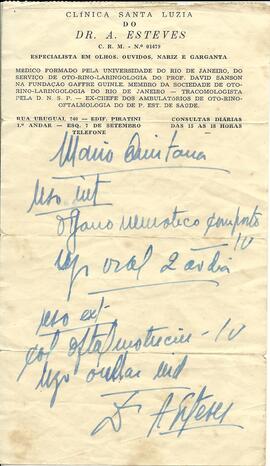 CLÍNICA SANTA LUZIA
DO
DR. A. ESTEVES
C. R. M. - N.º 01479
ESPECIALISTA EM OLHOS. OUVIDOS, NARIZ E GARGANTA
MÉDICO FORMADO PELA UNIVERSIDADE DO RIO DE JANEIRO, DO
SERVIÇO DE OTO-RINO-LARINGOLOGIA DO PROF. DAVID SANSON
NA FUNDAÇÃO GAFFRÉ GUINLE. MEMBRO DA SOCIEDADE DE OTO-
RINO-LARINGOLOGIA DO RIO DE JANEIRO — TRACOMOLOGISTA
PELA D. N. S. P. — EX-CHEFE DOS AMBULATÓRIOS DE OTO-RINO-
OFTALMOLOGIA DO DE P. EST. DE SAÚDE.
RUA URUGUAI, 740 — EDIF. PIRATINI
1.º ANDAR — ESQ. 7 DE SETEMBRO
TELEFONE
CONSULTAS DIÁRIAS
DAS 15 AS 18 HORAS
Mario Quintana
uso int
composto
IV
oral 2 ao dia
uso ext
Col - IV
ocular
Dr A Esteves